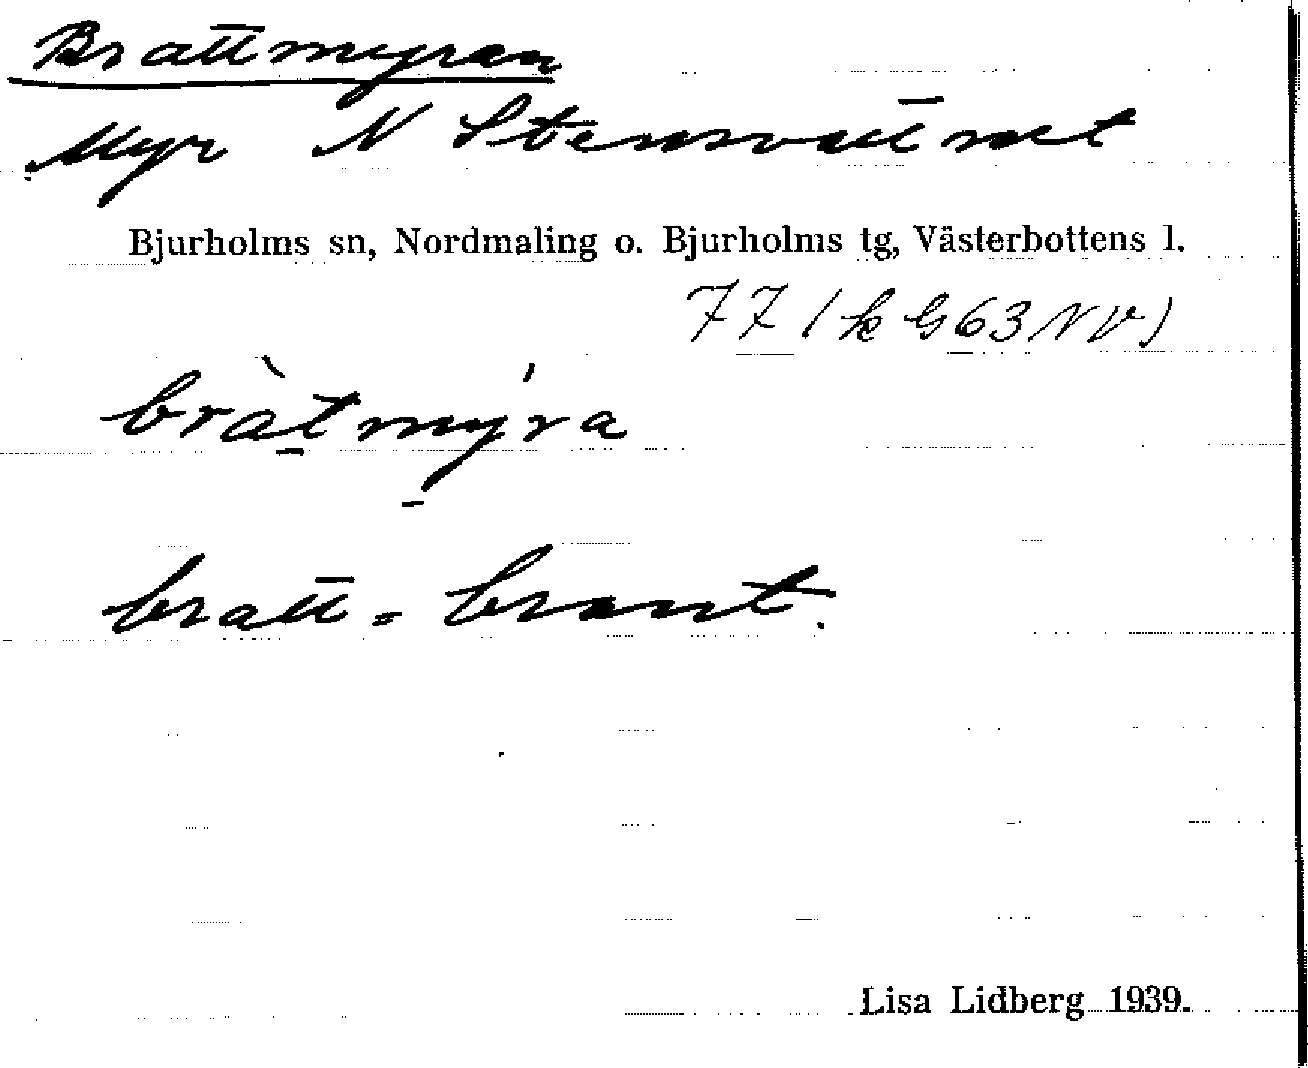 Brattmyran
Myr N Stensvattnet
Bjurholms sn, Nordmaling o. Bjurholms tg, Västerbottens l.
77 (k G63 NV)
bràt̠mý̠ra
bratt = brant.
Lisa Lidberg 1939.